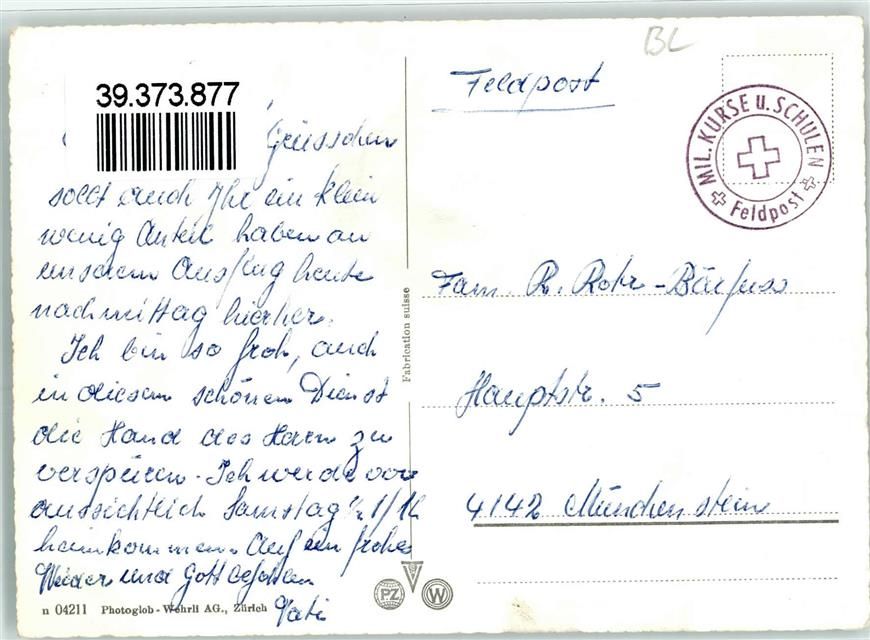 BL
39.373.877
Feldpost
MIL. KURSE u. SCHULEN
Feldpost
Grüsschen
sollt auch Ihr ein klein
wenig Anteil haben an
unserem Ausflug heute
nachmittag hierher.
Ich bin so froh, auch
in diesem schönen Dienst
die Hand des Herrn zu
verspüren. Ich werde vor
aussichtlich Samstag 1/12
heimkommen. Auf ein frohes
Wieder und Gott befohlen
Vati
Fam. R. Rohr-Bärfuss
Hauptstr. 5
4142 Münchenstein
Fabrication suisse
n 04211 Photoglob-Wehrli AG., Zürich
PZ
W